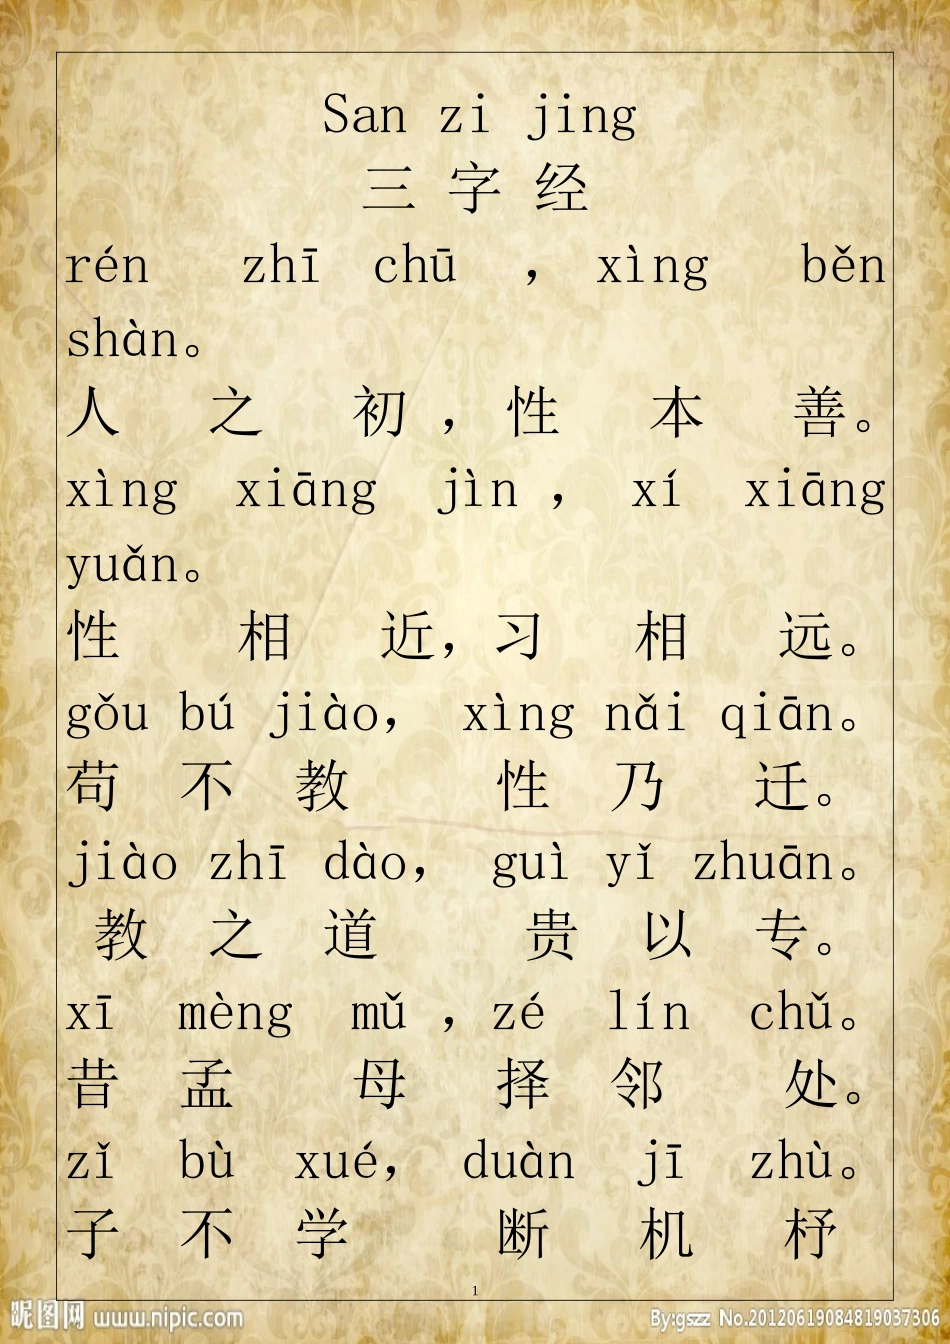 San zi jing
三 字 经
rén zhī chū ，xìng běn
shàn。
人 之 初 ，性 本 善。
xìng xiāng jìn ， xí xiāng
yuǎn。
性 相 近，习 相 远。
gǒu bú jiào， xìng nǎi qiān。
苟 不 教 性 乃 迁。
jiào zhī dào， guì yǐ zhuān。
教 之 道 贵 以 专。
xī mèng mǔ ，zé lín chǔ。
昔 孟 母 择 邻 处。
zǐ bù xué， duàn jī zhù。
子 不 学 断 机 杼
1
昵图网 www.nipic.com
By:gszz No.20120619084819037306